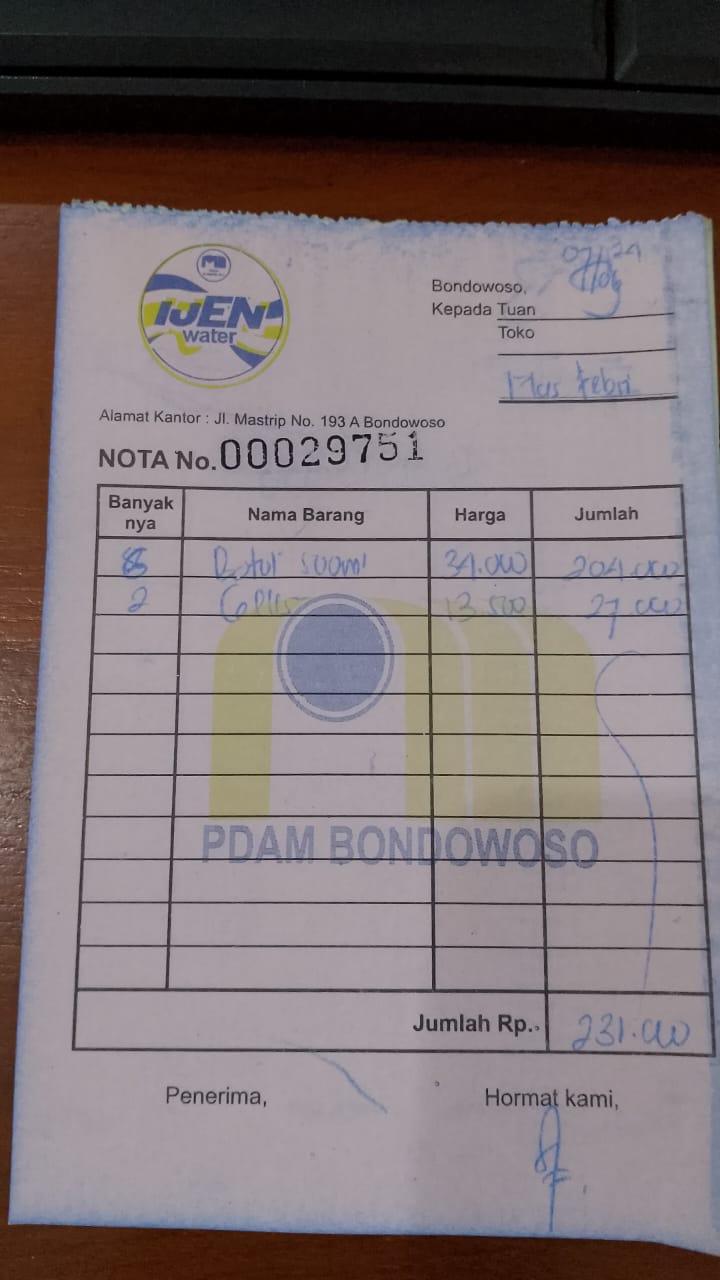 IJEN
water
Bondowoso,
Kepada Tuan
Toko
Mas Febri
Alamat Kantor : Jl. Mastrip No. 193 A Bondowoso
NOTA No. 00029751
Banyak nya Nama Barang Harga Jumlah
Botol 500ml 34.000 204.000
2 13.500 27.000
PDAM BONDOWOSO
Jumlah Rp. 231.000
Penerima, Hormat kami,